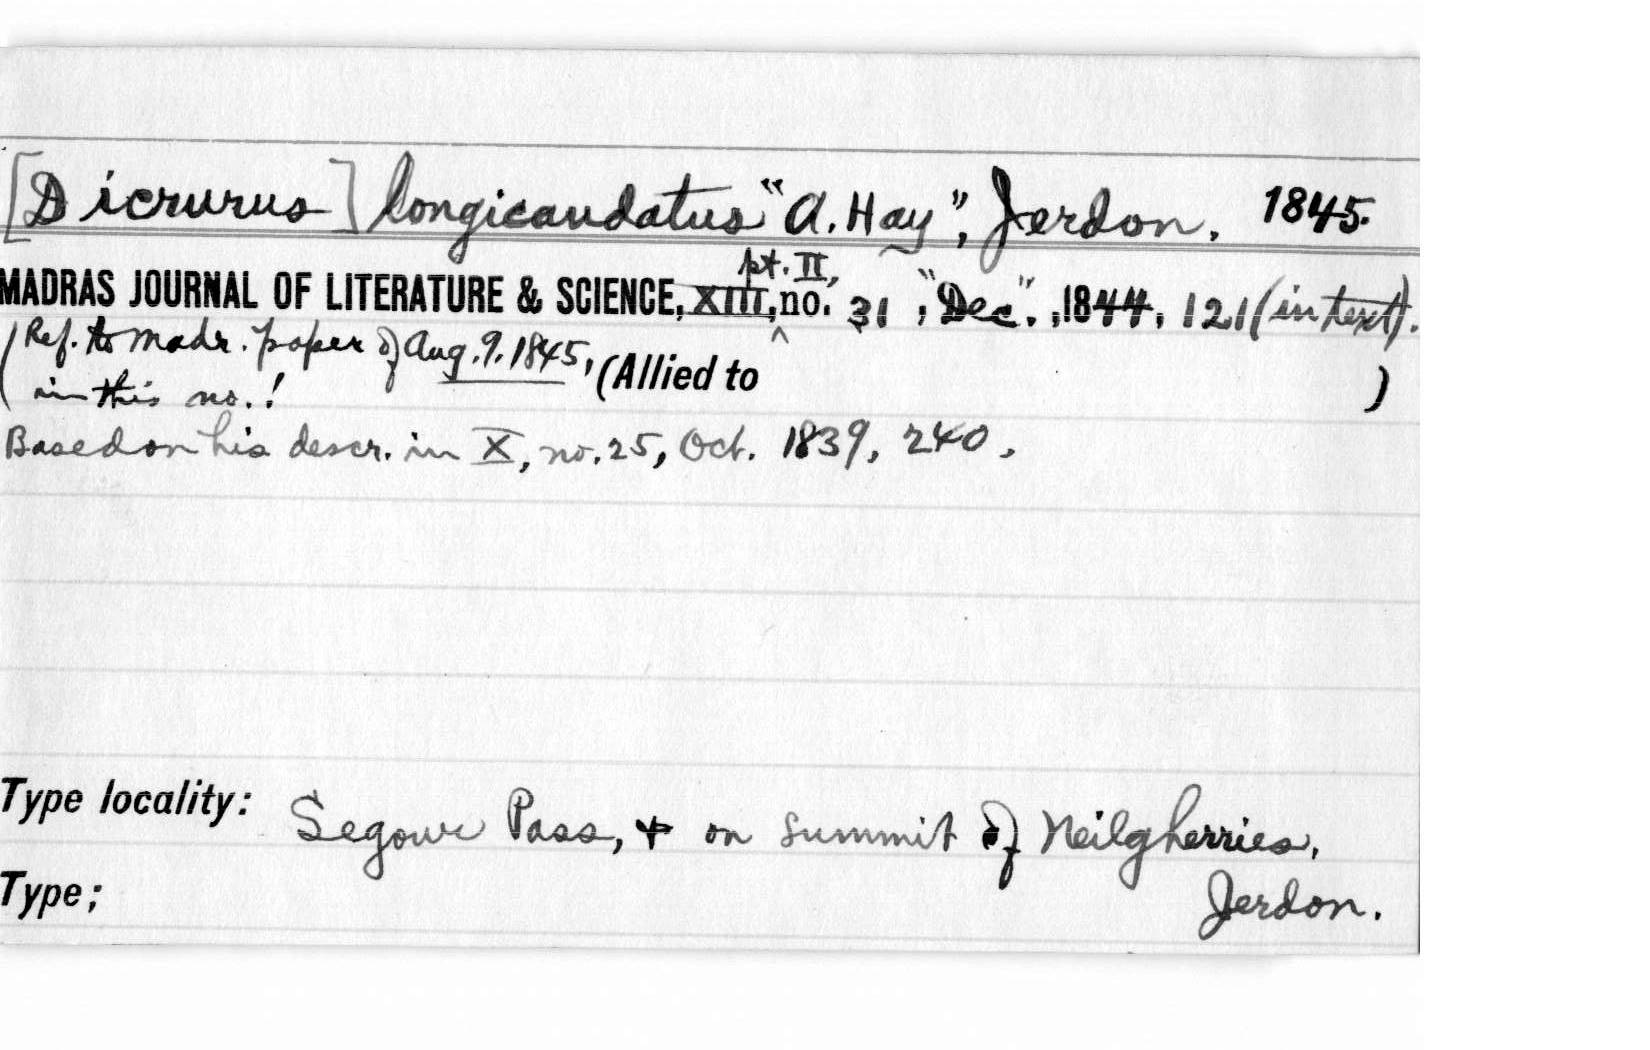 [Dicrurus] longicaudatus "A. Hay", Jerdon, 1845.
pt. II,
MADRAS JOURNAL OF LITERATURE & SCIENCE, XIII, no. 31, "Dec.", 1844, 121 (in text).
(Ref. to Madr. paper of Aug. 9. 1845,
in this no.! (Allied to )
Based on his descr. in X, no. 25, Oct. 1839, 240.
Type locality: Segowr Pass, & on summit of Neilgherries,
Type; Jerdon.